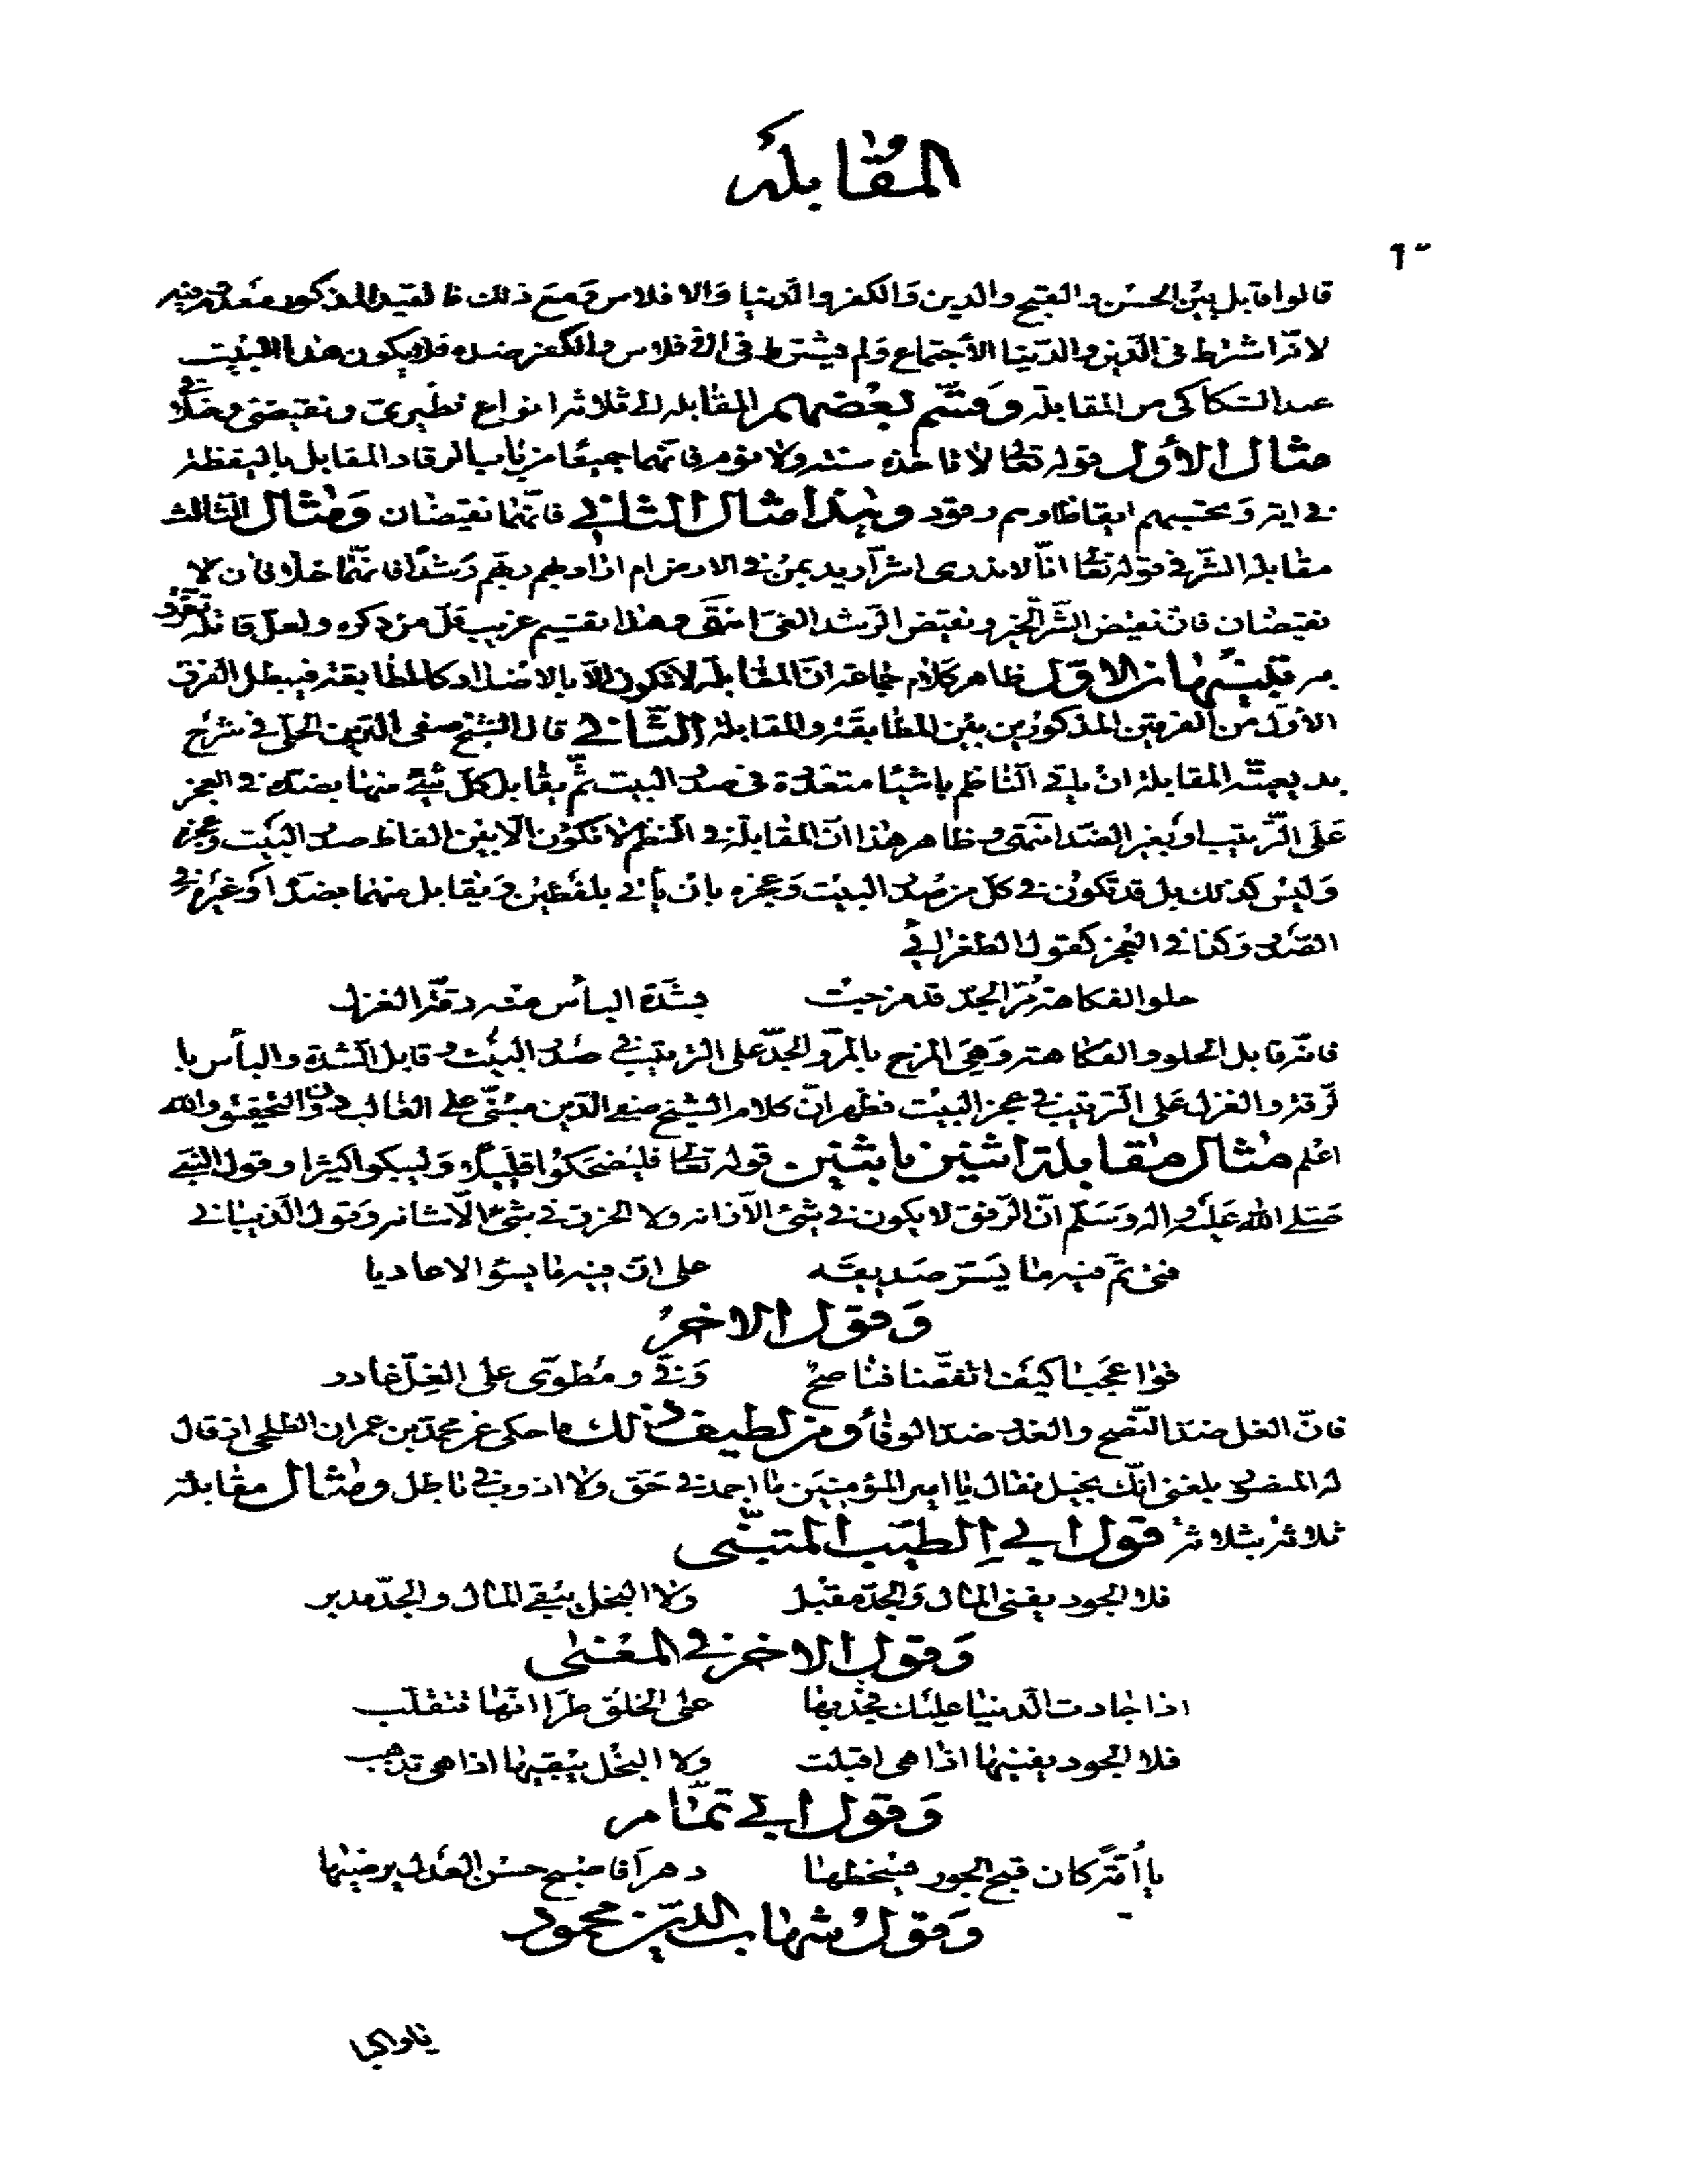 المقابلة
٦٠
قالوا قابل بين الحسن والقبح والدين والكفر والدنيا والافلاس ومع ذلك فالقيد المذكور مفقود فيه
لانه اشترط في الدين والدنيا الاجتماع ولم يشترط في الافلاس والكفر ضده فلا يكون هذا البيت
عند السكاكي من المقابلة وقسم بعضهم المقابلة الى ثلاثة انواع نظيري ونقيضي وخلافي
مثال الأول قوله تعالى لا تاخذه سنة ولا نوم فانهما جميعا من باب الرقاد المقابل باليقظة
في اية وتحسبهم ايقاظا وهم رقود وهذا مثال الثاني فانهما نقيضان ومثال الثالث
مقابلة الشر في قوله تعالى انا لا ندري اشر اريد بمن في الارض ام اراد بهم ربهم رشدا فانهما خلافان لا
نقيضان فان نقيض الشر الخير ونقيض الرشد الغي انتهى وهذا تقسيم غريب قل من ذكره ولعل قائله تفرد
به تنبيهان الاول ظاهر كلام جماعة ان المقابلة لا تكون الا بالاضداد كالمطابقة فيبطل الفرق
الأول من الفرقين المذكورين بين المطابقة والمقابلة الثاني قال الشيخ صفي الدين الحلي في شرح
بديعيته المقابلة ان ياتي الناظم باشيا متعددة في صدر البيت ثم يقابل كل شئ منها بضده في العجز
على الترتيب او بغير الضد انتهى وظاهر هذا ان المقابلة في النظم لا تكون الا بين الفاظ صدر البيت وعجزه
وليس كذلك بل قد تكون في كل من صدر البيت وعجزه بان يأتي بلفظين ويقابل منهما بضد او غيره في
الصدر وكذا في العجز كقول الطغرائي
حلو الفكاهة مر الجد قد مزجت بشدة البأس منه رقة الغزل
فانه قابل الحلو والفكاهة وهي المزح بالمر والجد على الترتيب في صدر البيت وقابل الشدة والبأس با
لرقة والغزل على الترتيب في عجز البيت فظهر ان كلام الشيخ صفي الدين مبني على الغالب دون التحقيق والله
اعلم مثال مقابلة اثنين باثنين قوله تعالى فليضحكوا قليلا وليبكوا كثيرا وقول النبي
صلى الله عليه واله وسلم ان الرفق لا يكون في شئ الا زانه ولا الخرق في شئ الا شانه وقول الذبياني
فتى تم فيه ما يسر صديقه على ان فيه ما يسؤ الاعاديا
وقول الاخر
فوا عجبا كيف اتفقنا فناصح وفي ومطوي على الغل غادر
فان الغل ضد النصح والغدر ضد الوفاء ومن لطيف ذلك ما حكى عن محمد بن عمران الطلحي اذ قال
له المنصور بلغني انك بخيل فقال يا امير المؤمنين ما اجمد في حق ولا اذوب في باطل ومثال مقابلة
ثلاثة بثلاثة قول ابي الطيب المتنبي
فلا الجود يفني المال والجد مقبل ولا البخل يبقي المال والجد مدبر
وقول الاخر في المعنى
اذا جادت الدنيا عليك فجد بها على الخلق طرا انها تتقلب
فلا الجود يفنيها اذا هي اقبلت ولا البخل يبقيها اذا هي تذهب
وقول ابي تمام
يا أمة كان قبح الجور يسخطها دهرا فاصبح حسن العدل يرضيها
وقول شهاب الدين محمود